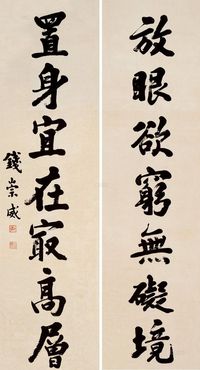 放眼欲窮無礙境
置身宜在寂高層
錢崇威